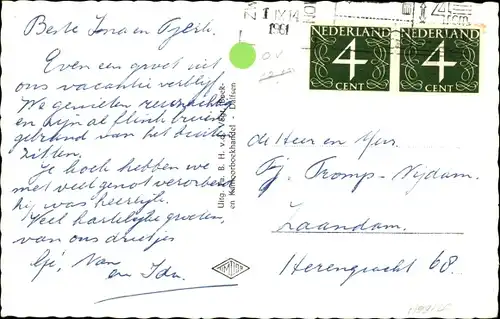 Beste Iona en Tjerk.
Even een groet uit
ons vacantie verblijf.
We genieten reuzachtig
en zijn al flink bruin
gebrand van het buiten
zitten.
Je koek hebben we
met veel genot verorberd
hij was heerlijk.
Veel hartelijke groeten,
van ons drietjes
Gé, Nan
en Ida.
Uitg. Fa. B. H. v.
en Kantoorboekhandel - Dalfsen
1961
NEDERLAND
4
CENT
NEDERLAND
4
CENT
de Heer en Mevr.
Tj. Tromp-Nijdam.
Zaandam.
Herengracht 68.